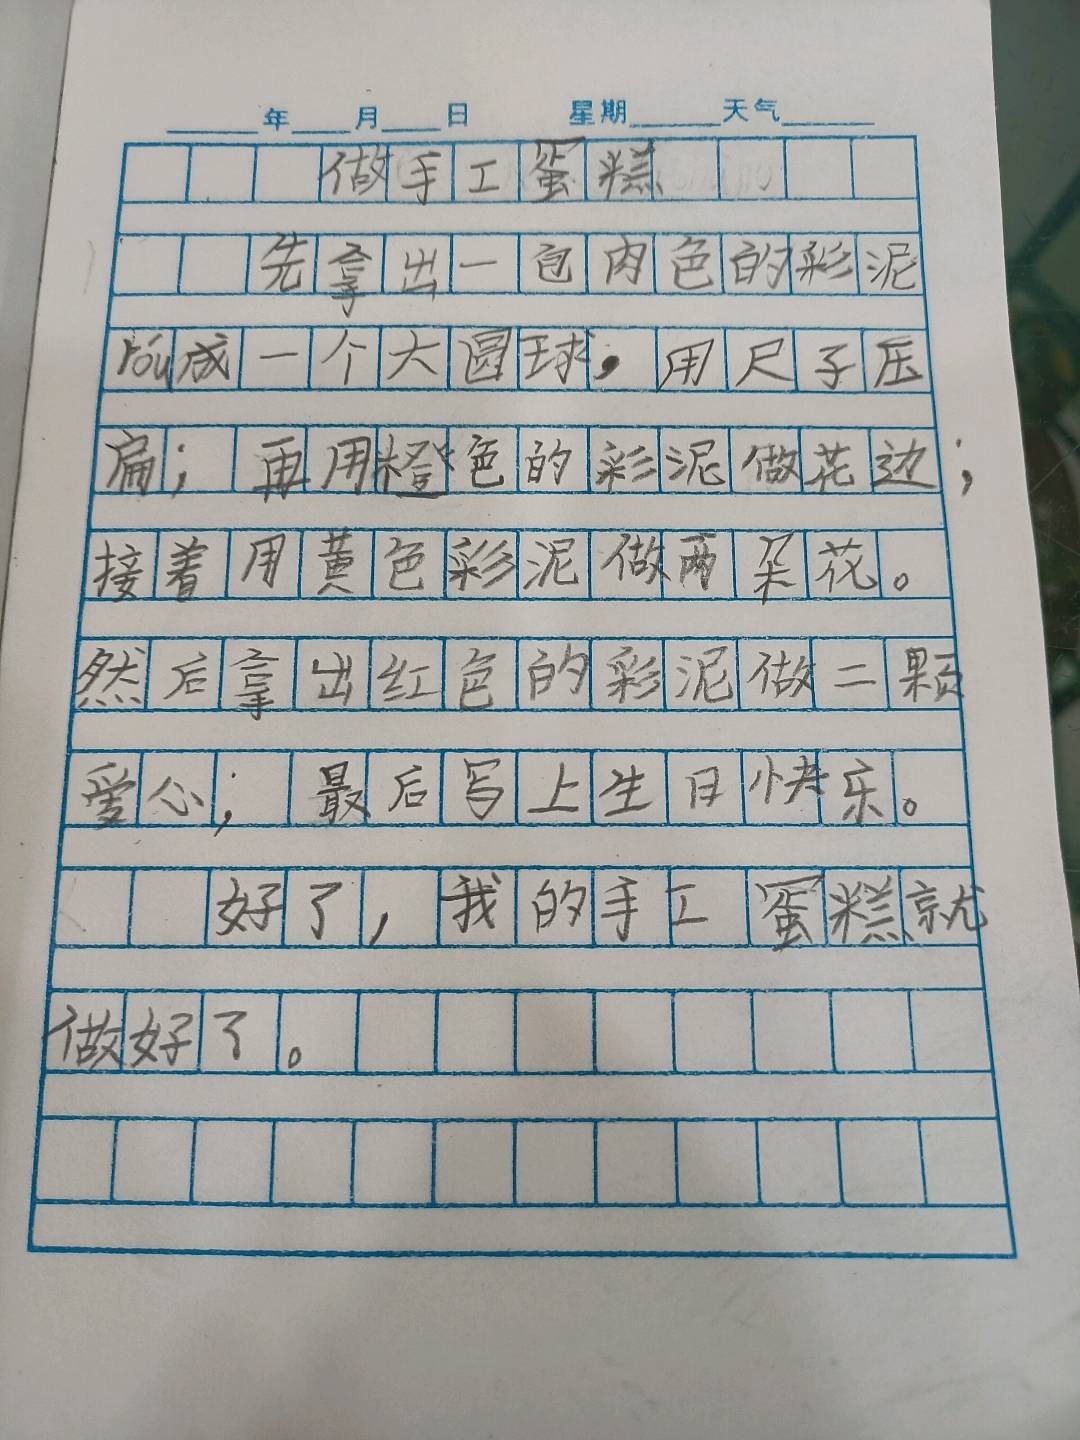 年 月 日 星期 天气
做手工蛋糕
先拿出一包肉色的彩泥
róu成一个大圆球，用尺子压
扁；再用橙色的彩泥做花边；
接着用黄色彩泥做两朵花。
然后拿出红色的彩泥做二颗
爱心；最后写上生日快乐。
好了，我的手工蛋糕就
做好了。